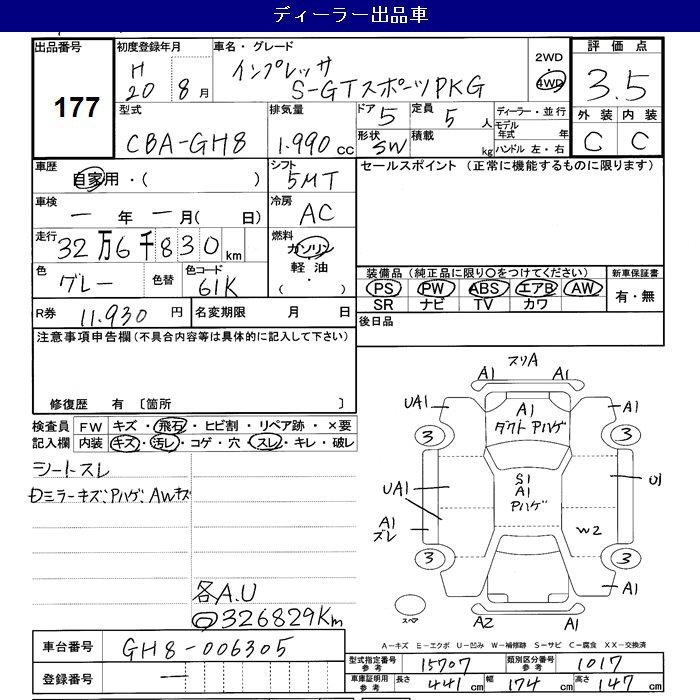 ディーラー出品車
出品番号
177
初度登録年月
H
20 8 月
車名・グレード
インプレッサ
S-GTスポーツPKG
2WD
4WD
評価点
3.5
外装 内装
C C
型式
CBA-GH8
排気量
1.990 cc
ドア 5
定員 5 人
形状 SW
積載 kg
ディーラー・並行
モデル年式 年
ハンドル 左・右
車歴
自家用・( )
シフト
5MT
セールスポイント (正常に機能するものに限ります)
車検
一 年 一 月( 日)
冷房
AC
走行
32 万 6 千 8 3 0 km
燃料
ガソリン
軽油
( )
色
グレー
色替
色コード
61K
装備品 (純正品に限り○をつけてください)
PS PW ABS エアB AW
SR ナビ TV カワ
新車保証書
有・無
R券 11.930 円
名変期限 月 日
後日品
注意事項申告欄 (不具合内容等は具体的に記入して下さい)
修復歴 有 〔箇所 〕
検査員
記入欄
FW キズ・飛石・ヒビ割・リペア跡・×要
内装 キズ・汚レ・コゲ・穴・スレ・キレ・破レ
シートスレ
Dミラーキズ、Pハゲ、AWキズ
各A.U
326829Km
スリA
A1 A1
UA1
A1
A1
ダクトPハゲ
3 3
S1
A1
Pハゲ
UA1
U1
A1
ズレ
W2
3 3
A1
スペア
A2 A1
A-キズ E-エクボ U-凹み W-補修跡 S-サビ C-腐食 XX-交換済
車台番号 GH8-006305
登録番号 一
型式指定番号 参考 15707
類別区分番号 参考 1017
車庫証明用 参考 長さ 441 cm 幅 174 cm 高さ 147 cm